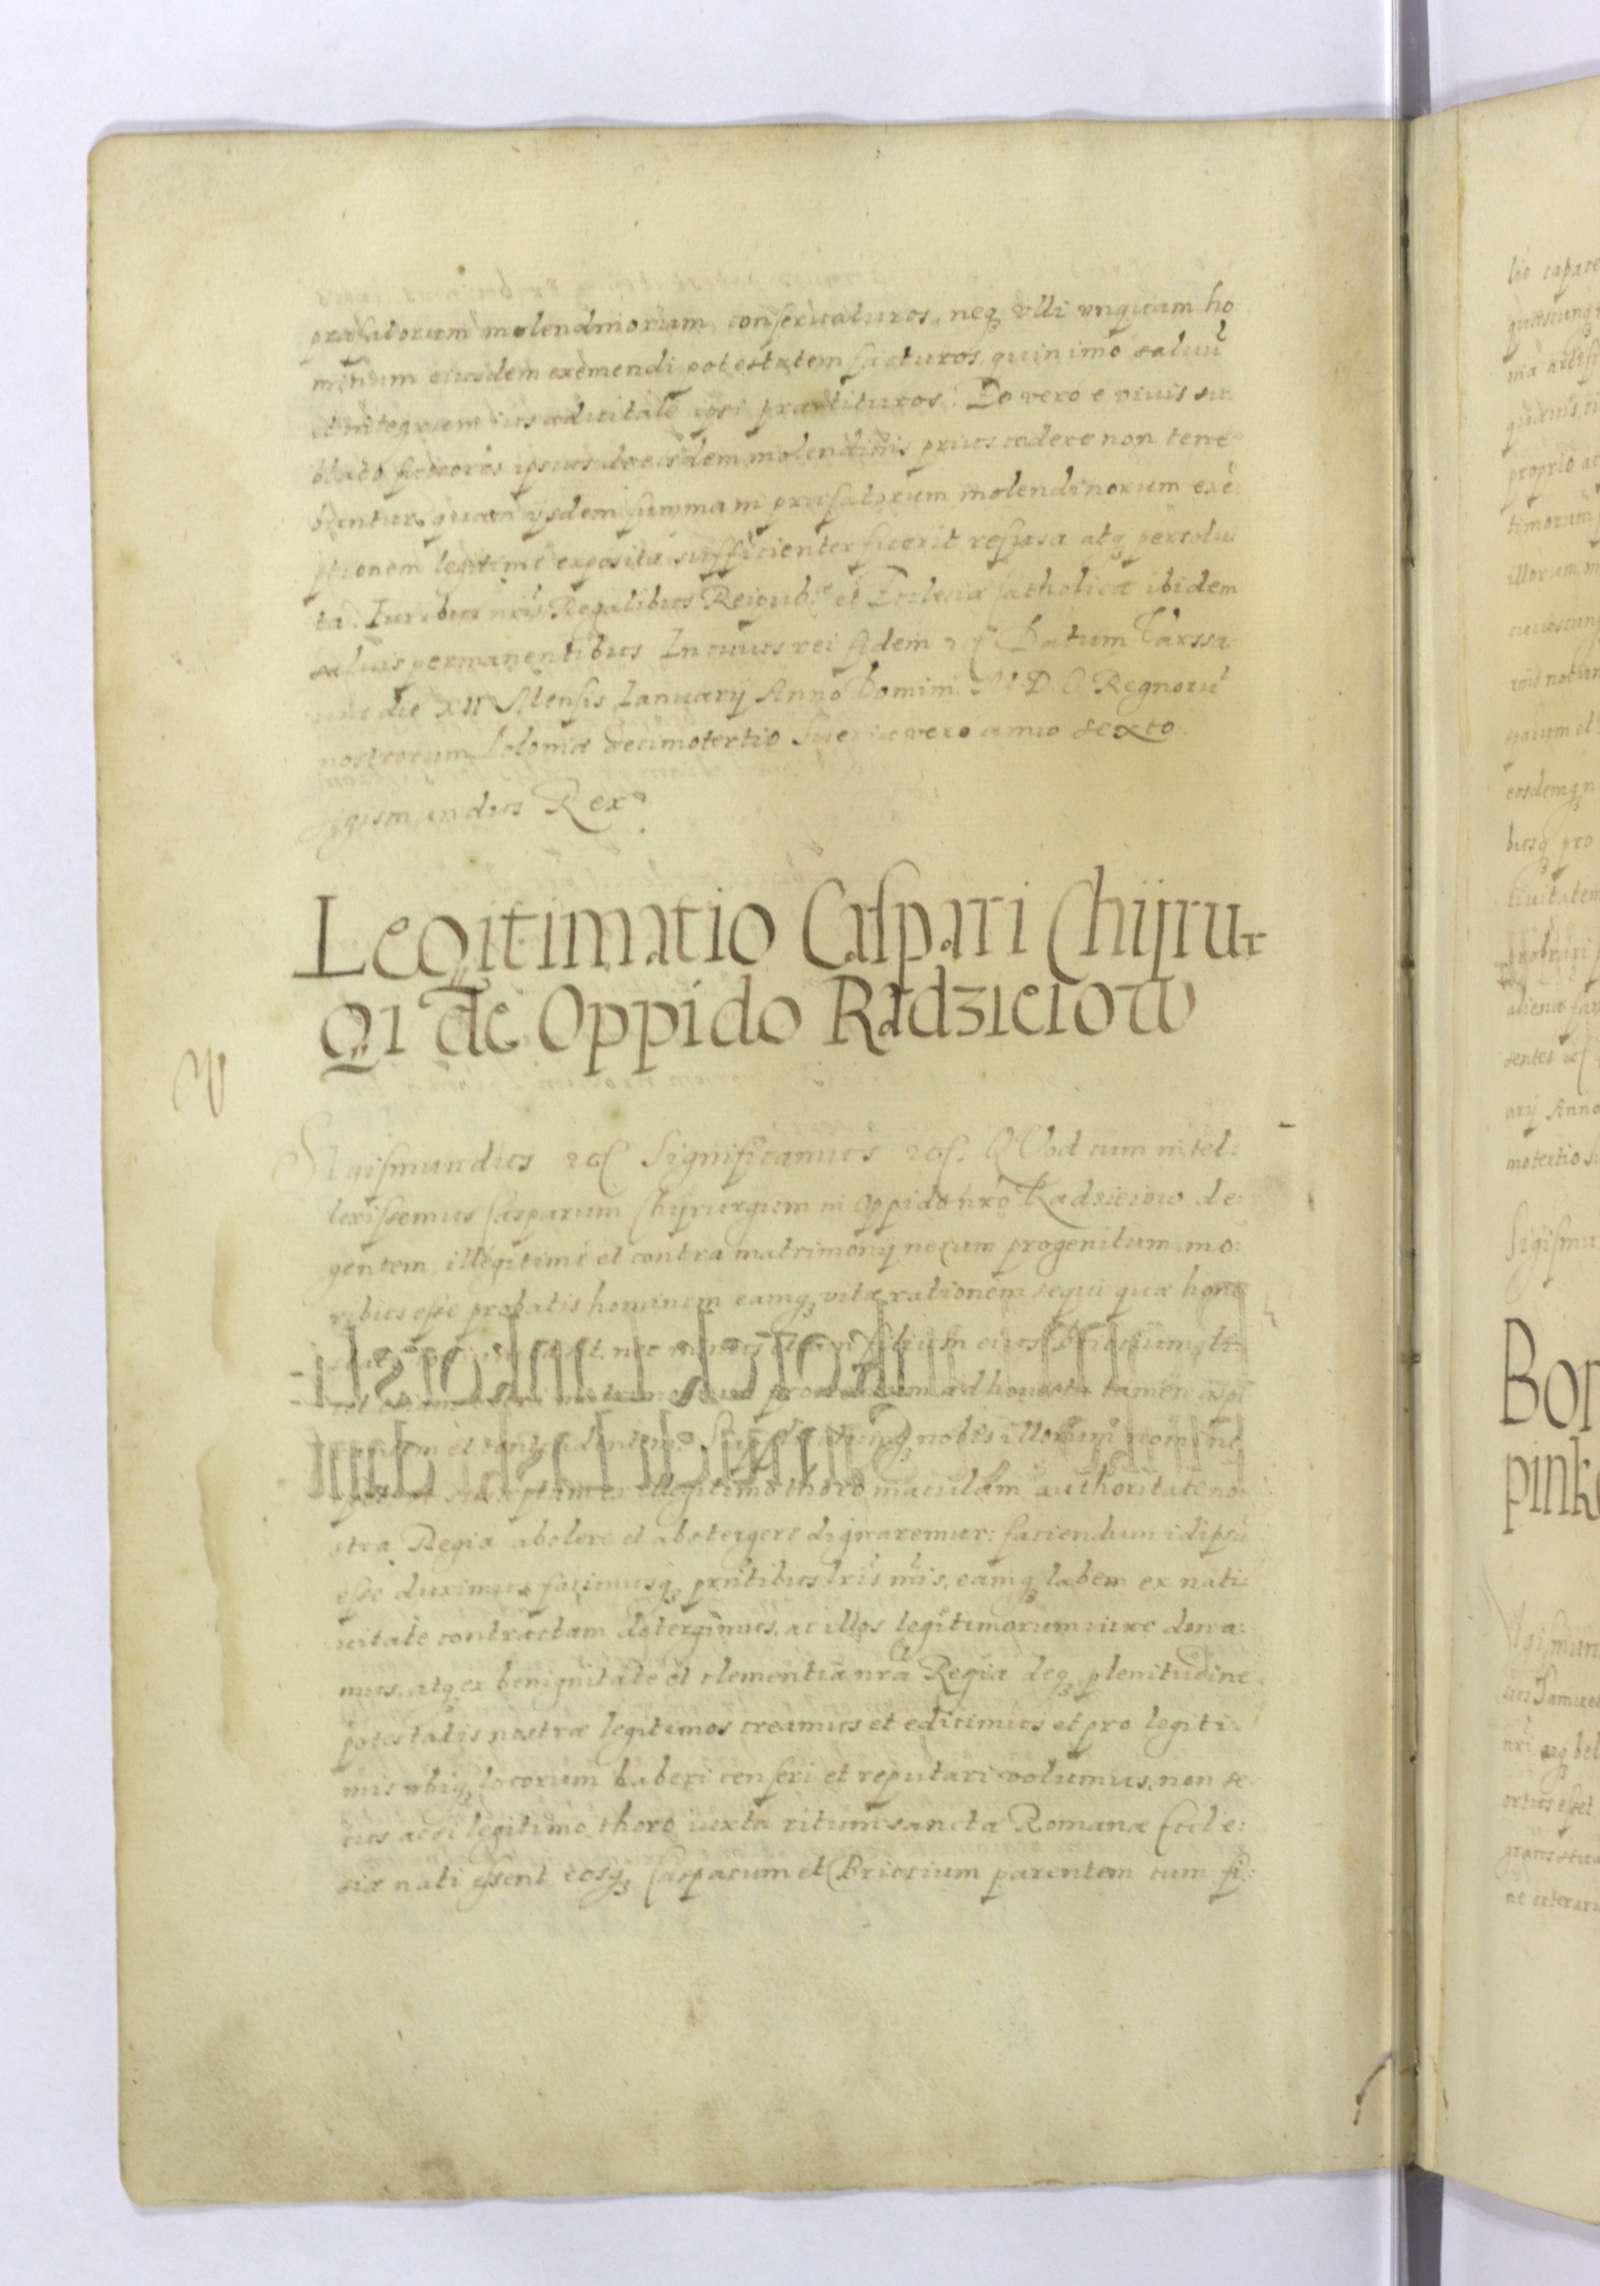 præfatorum molendinorum conseruaturos, neq3 vlli vnquam ho
minum eiusdem exemendi potestatem facturos, quinimo saluū
et integrum ius aduitale ipsi præstituros. Eo vero e viuis su
blato successores ipsius de eisdem molendinis prius cedere non tene
buntur, quam ijsdem summam præfatorum molendinorum exē
ptionem legitime exposita sufficienter fuerit refusa atq3 persolu
ta. Iuribus nris Regalibus Reipub. et Ecclesiæ Catholicæ ibidem
saluis permanentibus In cuius rei fidem Datum Varssa
uiæ die XII Mensis Ianuarij Anno Domini M.D.C Regnorū
nostrorum Poloniæ decimotertio Sueciæ vero anno sexto
Sigismundus Rex
Legitimatio Casparí Chijru-
gi de Oppido Radzieiow
Sigismundus Significamus QVod cum intel:
lexissemus Casparum Chijrurgum in oppido nrō Radzieiow de:
gentem, illegitime et contra matrimonij nexum progenitum, mo:
ribus esse probatis hominem eamq3 vitæ rationem sequi quæ hone
nec minus filium eius Brictium,
ad honesta tamen
nobis illorum nomine
illegitimo thoro maculam authoritate no:
stra Regia abolere et abstergere dignaremur: faciendum id ipsū
esse duximus facimusq3 prntibus lris nris, eamq3 labem ex nati:
uitate contractam detergimus, ac illos legitimorum iure dona:
mus, atq3 ex benignitate et clementia nra Regia deq3 plenitudine
potestatis nostræ legitimos creamus et edicimus et pro legiti:
mis vbiq3 locorum haberi censeri et reputari volumus, non se
cus ac si legitimo thoro iuxta ritum sanctæ Romanæ Eccle:
siæ nati essent eosq3 Casparum et Brictium parentem cum fi: